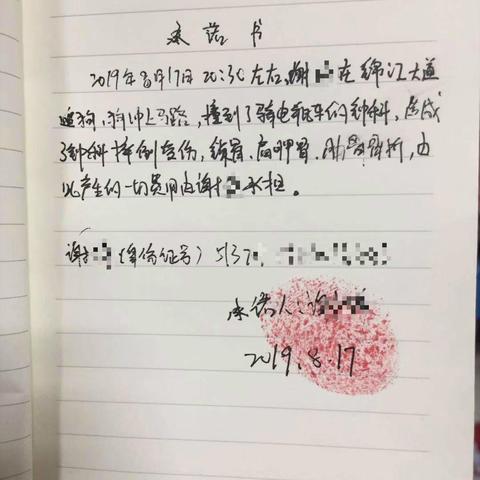 承诺书
2019年8月17日20:30左右,谢 在锦江大道
遛狗,狗冲上马路,撞到了骑电瓶车的钟科,造成
了钟科摔倒受伤,锁骨、肩胛骨、肋骨骨折,由
此产生的一切费用由谢 承担。
谢 (身份证号)5137
承诺人:谢
2019.8.17